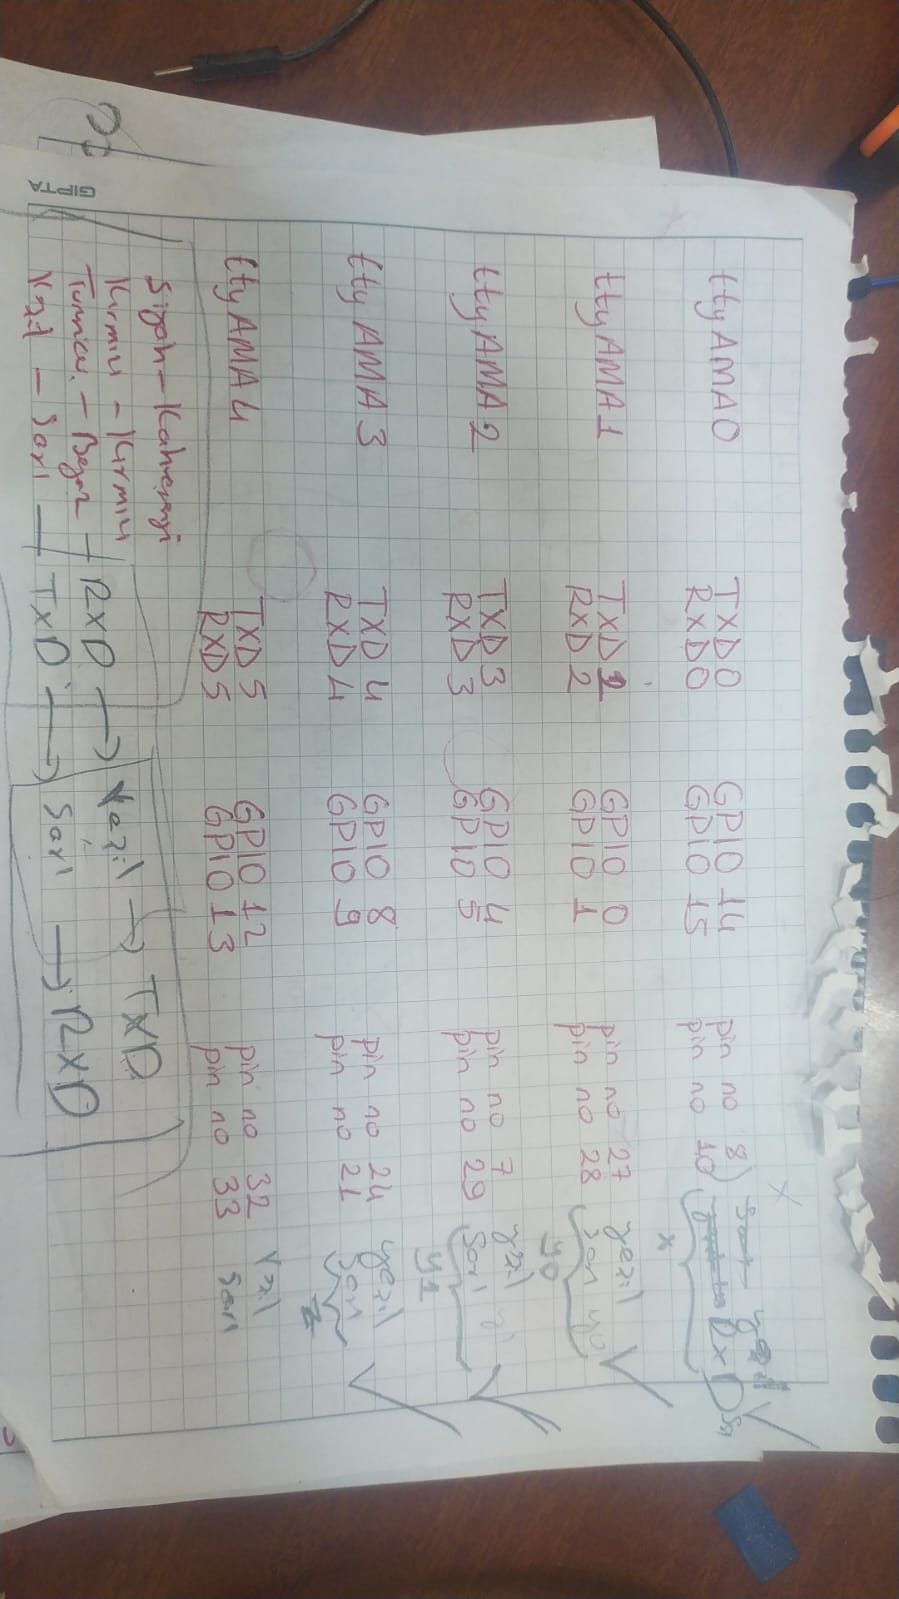 ttyAMA0 TXD0 GPIO 14 pin no 8
RXD0 GPIO 15 pin no 10 RxD
x
ttyAMA1 TXD2 GPIO 0 pin no 27 yeşil
RXD2 GPIO 1 pin no 28 sarı y0
y0
ttyAMA2 TXD3 GPIO 4 pin no 7 yeşil
RXD3 GPIO 5 pin no 29 Sarı
y1
ttyAMA3 TXD4 GPIO 8 pin no 24 yeşil
RXD4 GPIO 9 pin no 21 Sarı
z
ttyAMA4 TXD5 GPIO 12 pin no 32 Yeşil
RXD5 GPIO 13 pin no 33 Sarı
Siyah - Kahverengi
Kırmızı - Kırmızı
Turuncu - Beyaz - RXD → Yeşil → TXD
Yeşil - Sarı - TXD → Sarı → RXD
GIPTA